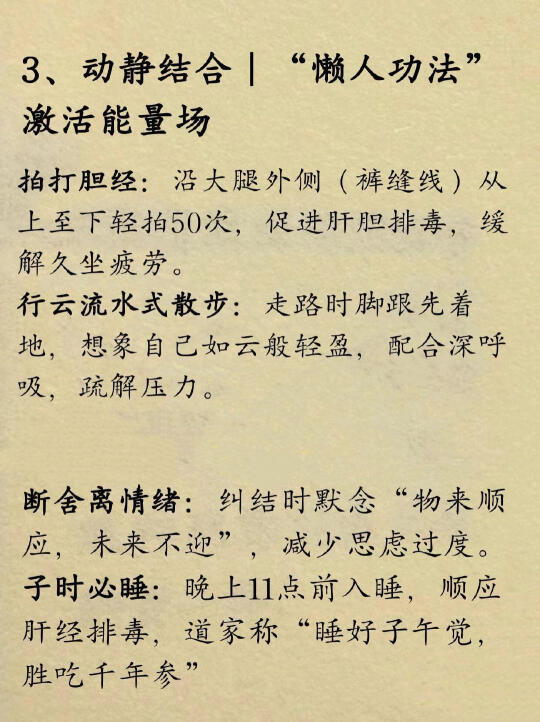 3、动静结合｜“懒人功法”
激活能量场
拍打胆经：沿大腿外侧（裤缝线）从
上至下轻拍50次，促进肝胆排毒，缓
解久坐疲劳。
行云流水式散步：走路时脚跟先着
地，想象自己如云般轻盈，配合深呼
吸，疏解压力。
断舍离情绪：纠结时默念“物来顺
应，未来不迎”，减少思虑过度。
子时必睡：晚上11点前入睡，顺应
肝经排毒，道家称“睡好子午觉，
胜吃千年参”